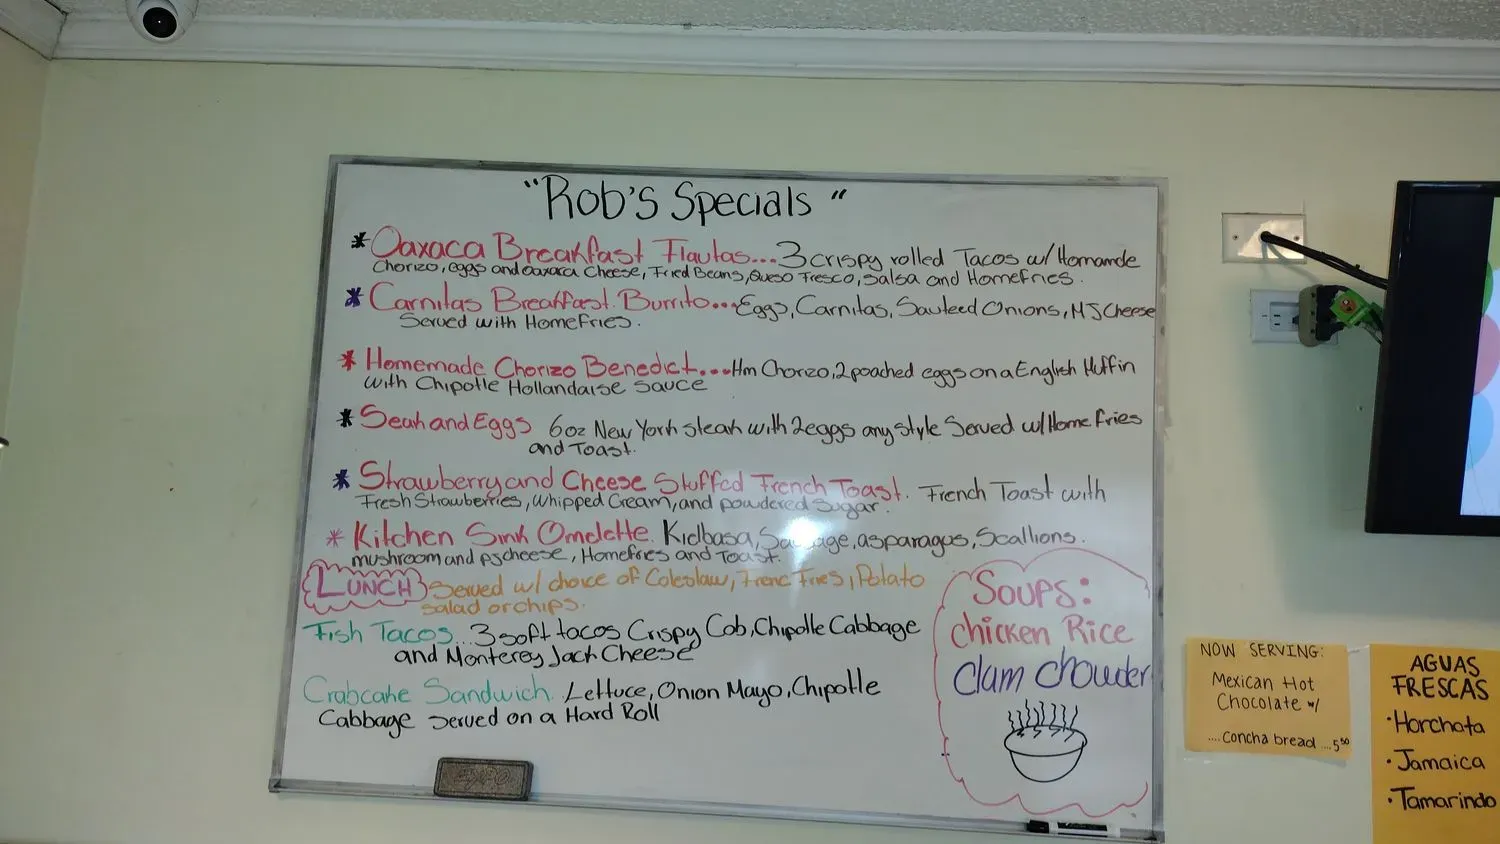 "Rob's Specials"
* Oaxaca Breakfast Flautas...3 crispy rolled Tacos w/ Homamde
Chorizo, eggs and Oaxaca Cheese, Fried Beans, Queso Fresco, Salsa and Homefries.
* Carnitas Breakfast Burrito...Eggs, Carnitas, Sauteed Onions, MJ Cheese
Served with Homefries.
* Homemade Chorizo Benedict....Hm Chorizo, 2 poached eggs on a English Muffin
with Chipotle Hollandaise Sauce
* Seak and Eggs 6oz New York steak with 2 eggs any style Served w/ Home Fries
and Toast.
* Strawberry and Cheese Stuffed French Toast. French Toast with
Fresh Strawberries, Whipped Cream, and powdered sugar.
* Kitchen Sink Omelette. Kielbasa, Sausage, asparagus, Scallions.
mushroom and pjcheese, Homefries and Toast.
LUNCH Served w/ choice of Coleslaw, Frenc Fries, Potato
salad or chips.
Fish Tacos...3 soft tacos Crispy Cob, Chipotle Cabbage
and Monterey Jack Cheese
Crabcake Sandwich. Lettuce, Onion Mayo, Chipotle
Cabbage served on a Hard Roll
Soups:
Chicken Rice
Clam Chowder
EXPO
NOW SERVING:
Mexican Hot
Chocolate w/
....Concha bread ...5⁵⁰
AGUAS
FRESCAS
·Horchata
·Jamaica
·Tamarindo